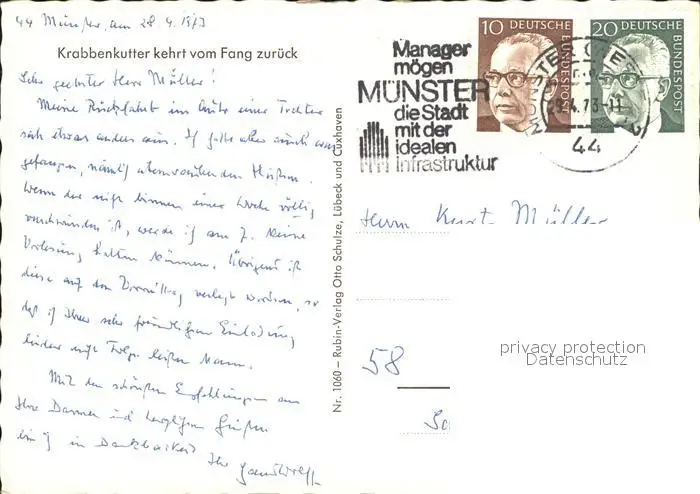 44 Münster, am 28.4.1973
Krabbenkutter kehrt vom Fang zurück
Sehr geehrter Herr Müller!
Meine Rückfahrt im
sich etwas anders aus. Ich habe aber auch
gefangen, nämlich
Wenn der nicht binnen einer Woche völlig
verschwunden ist, werde ich am 7. keine
Vorlesung halten können. Übrigens ist
diese auf den Vormittag verlegt worden, so
daß ich Ihrer sehr freundlichen Einladung
leider nicht Folge leisten kann.
Mit den schönsten Empfehlungen an
Ihre Damen und herzlichen Grüßen
bin ich in Dankbarkeit
Ihr
Nr. 1060 – Rubin-Verlag Otto Schulze, Lübeck und Cuxhaven
Manager
mögen
MÜNSTER
die Stadt
mit der
idealen
Infrastruktur
10 DEUTSCHE
BUNDESPOST
20 DEUTSCHE
BUNDESPOST
44
Herrn Kurt Müller
58
privacy protection
Datenschutz